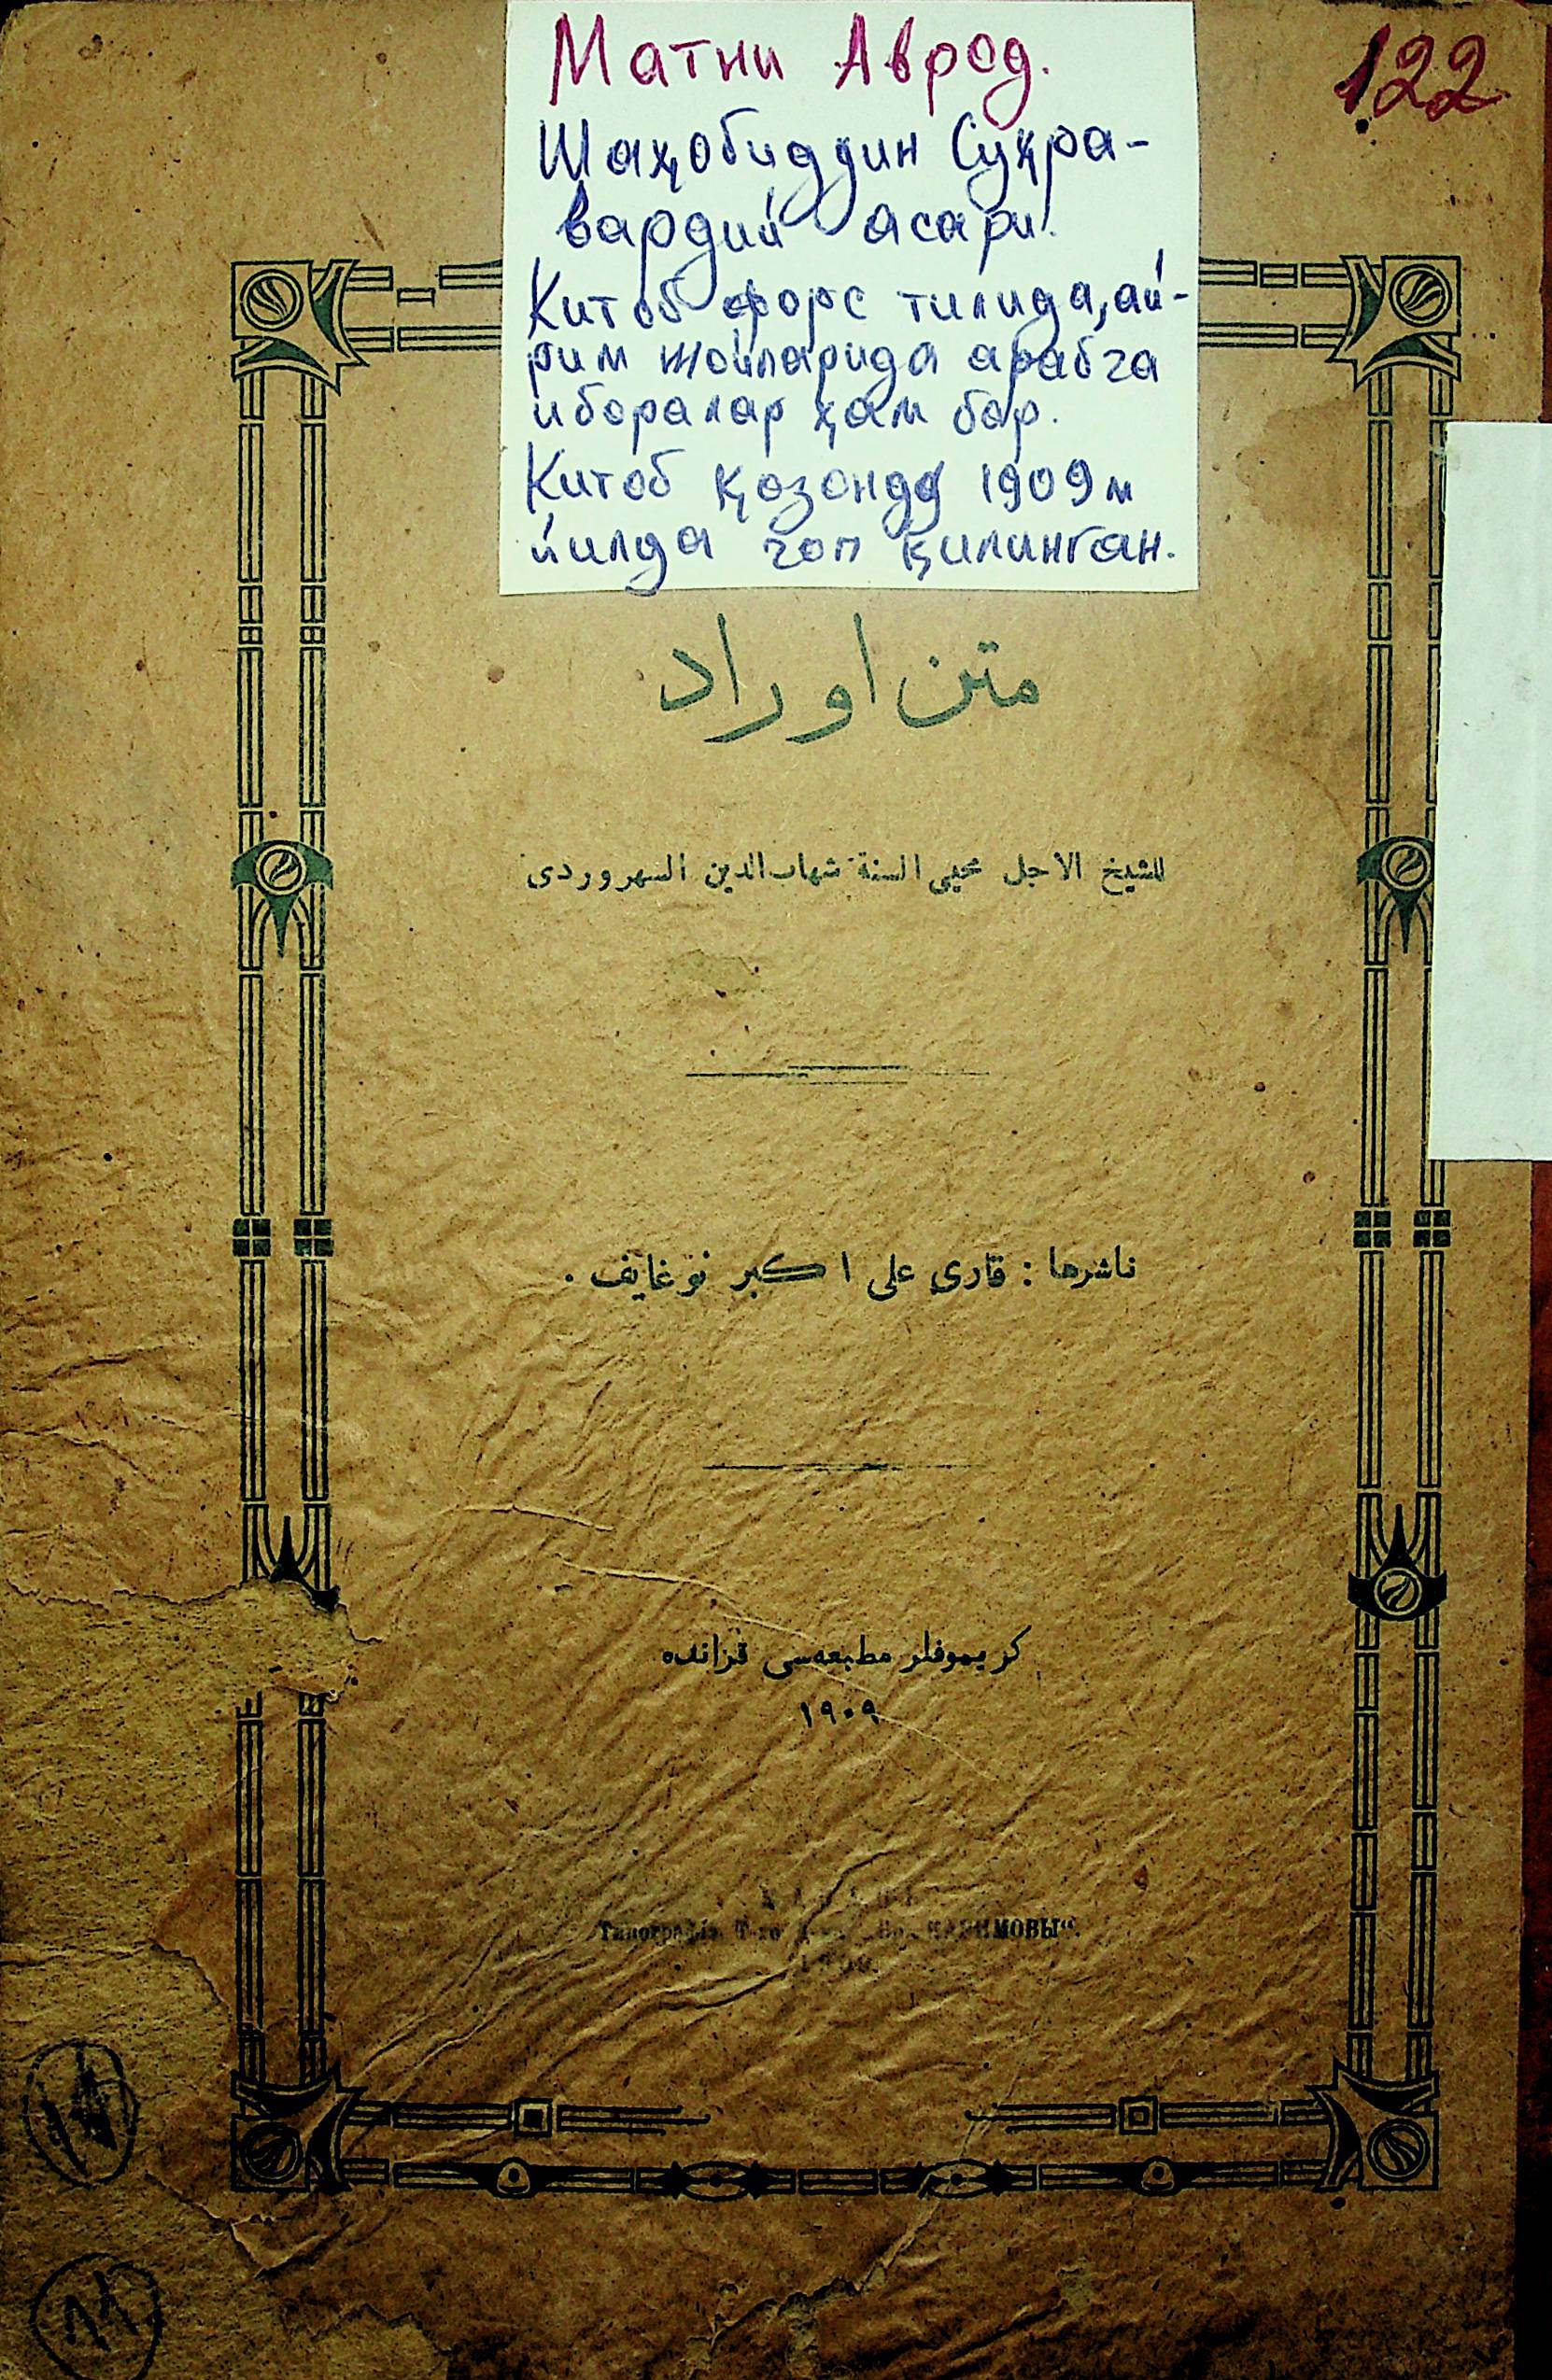 Матни Аврод.
122
Шаҳобиддин Суҳра-
вардий асари.
Китоб форс тилида, ай-
рим жойларида арабча
иборалар ҳам бор.
Китоб Қозонда 1909 м
йилда чоп қилинган.
متن اوراد
للشيخ الاجل محيى السنة شهاب الدين السهروردى
ناشرها : قارى على اكبر نوغايف .
كريموفلر مطبعه‌سى قزانده
١٩٠٩
Типографія Т-го "КАРИМОВЫ".
1909
11